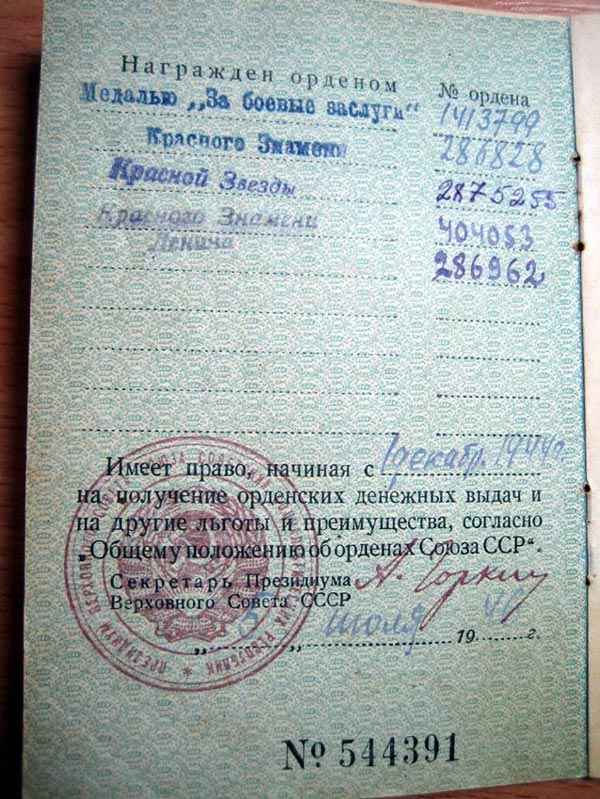 Награжден орденом № ордена
Медалью „За боевые заслуги“ 1413799
Красного Знамени 286828
Красной Звезды 2875255
Красного Знамени 404053
Ленина 286962
Имеет право, начиная с 1 декабр. 1944 г.
на получение орденских денежных выдач и
на другие льготы и преимущества, согласно
„Общему положению об орденах Союза ССР“.
Секретарь Президиума А. Горкин
Верховного Совета СССР
„ „ июля 19 г.
№ 544391